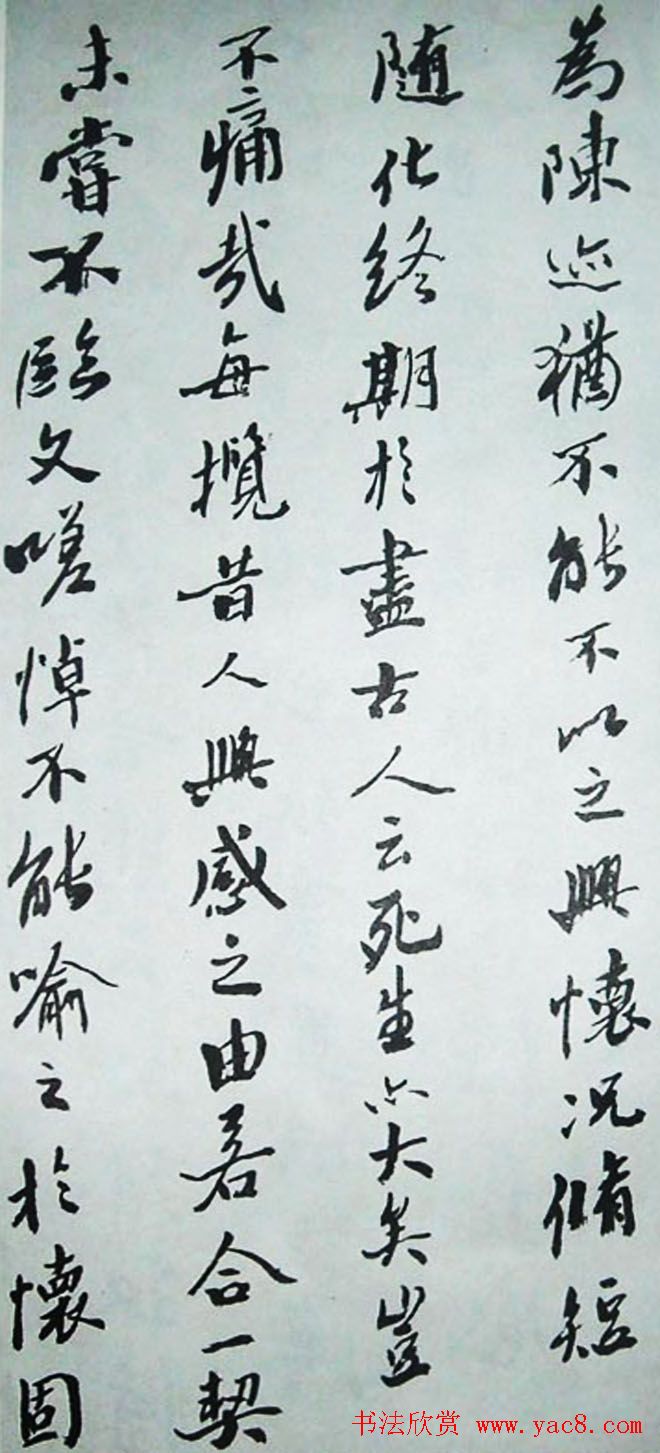 為陳迹猶不能不以之興懷況脩短
随化終期於盡古人云死生亦大矣豈
不痛哉每攬昔人興感之由若合一契
未嘗不臨文嗟悼不能喻之於懷固
书法欣赏 www.yac8.com